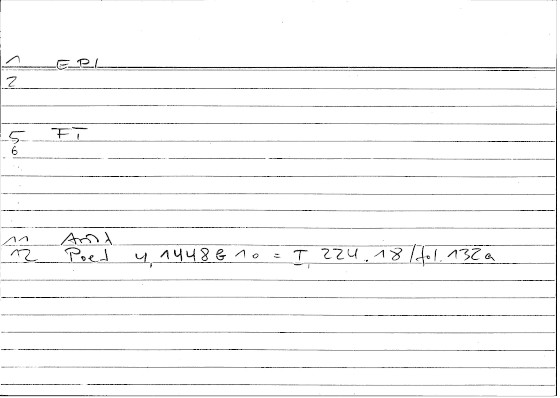 1 EPI
2
5 FT
6
11 Arist
12 Poet 4, 1448 b 10 = I, 224.18 / fol. 132a